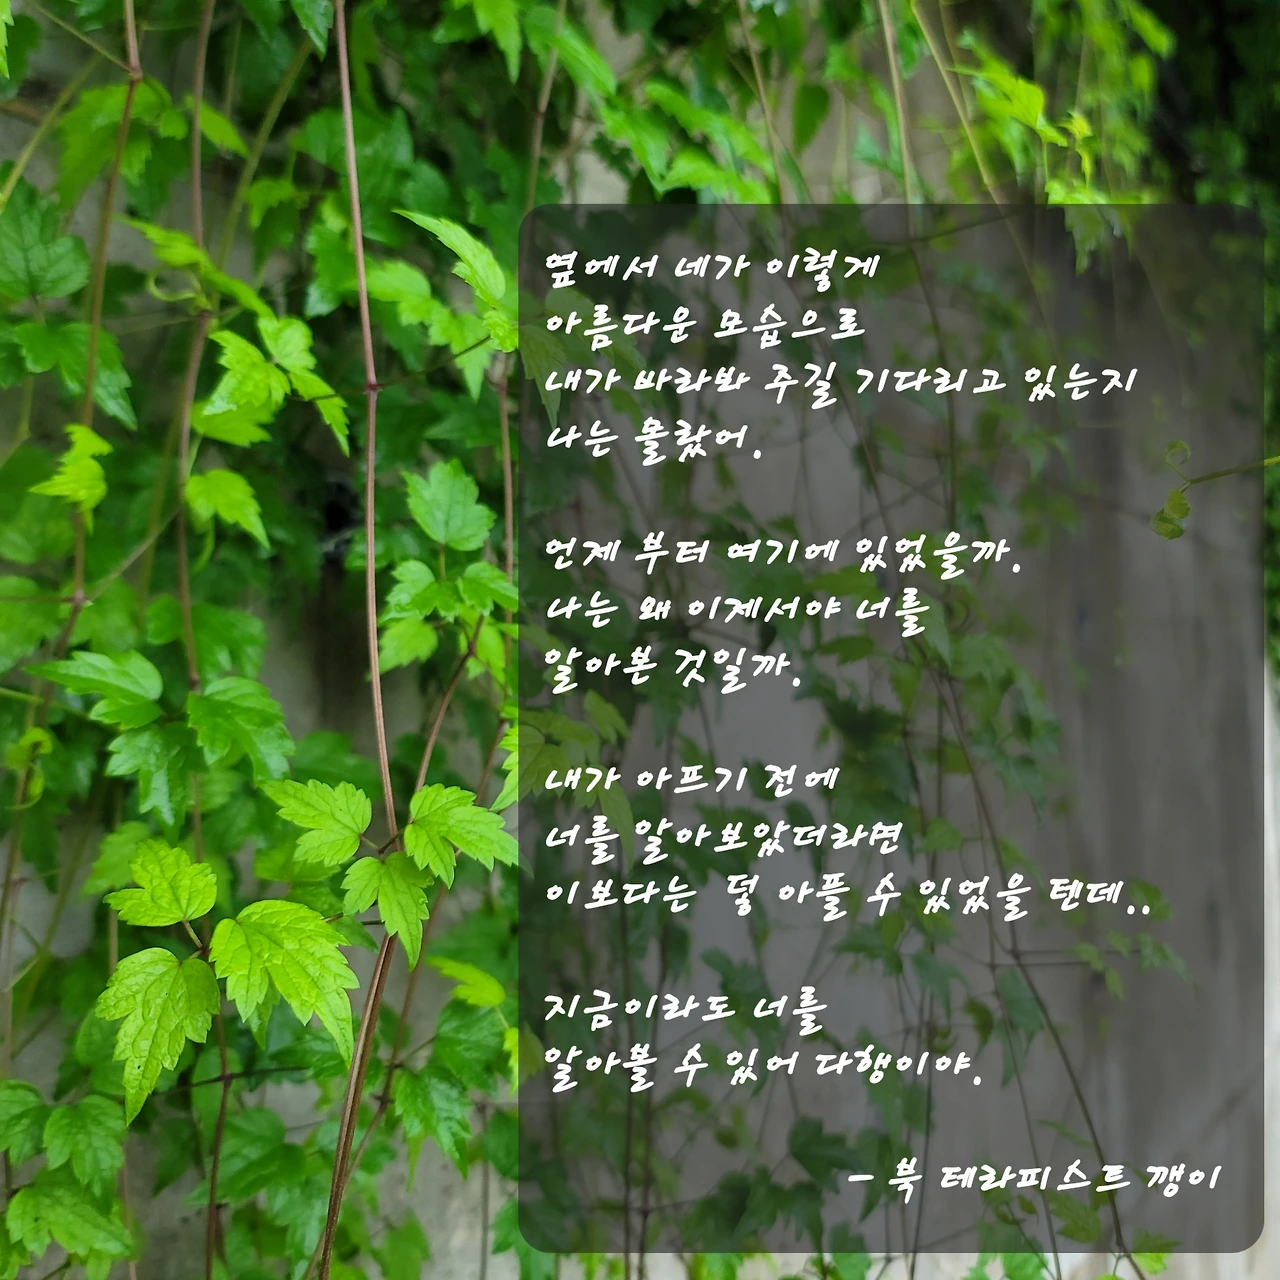 옆에서 네가 이렇게
아름다운 모습으로
내가 바라봐 주길 기다리고 있는지
나는 몰랐어.
언제 부터 여기에 있었을까.
나는 왜 이제서야 너를
알아본 것일까.
내가 아프기 전에
너를 알아보았더라면
이보다는 덜 아플 수 있었을 텐데..
지금이라도 너를
알아볼 수 있어 다행이야.
- 북 테라피스트 깽이